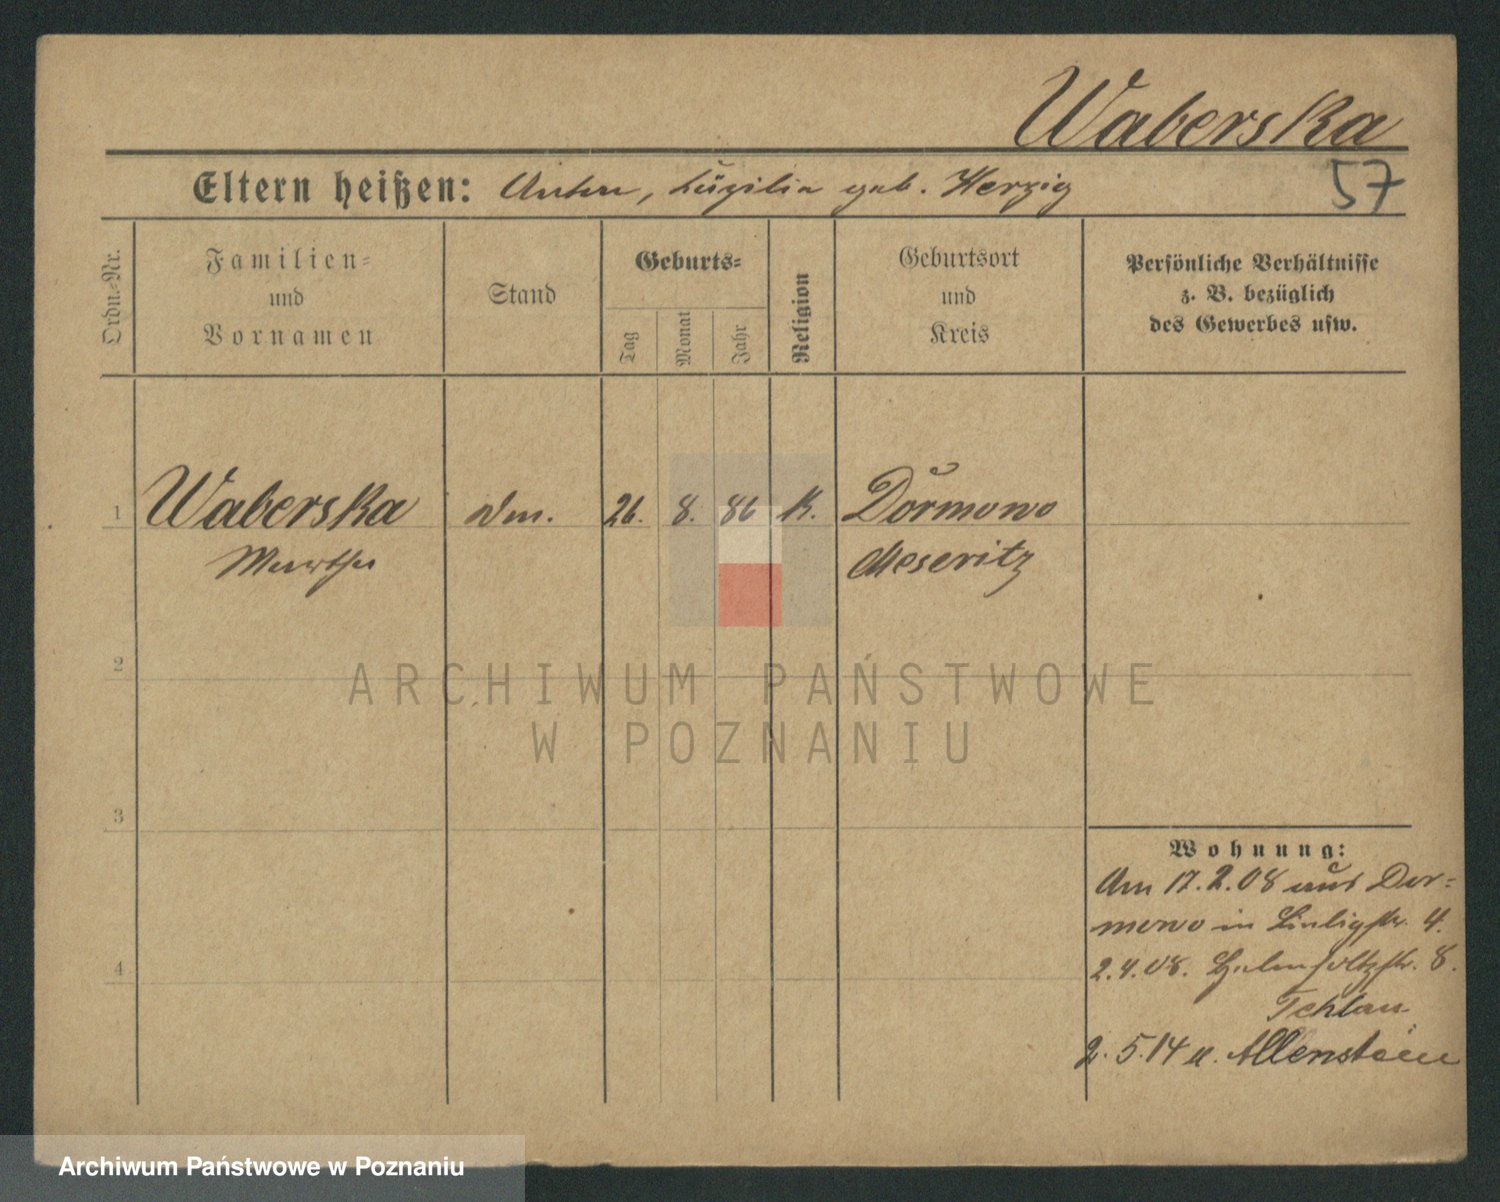 Waberska
57
Eltern heißen: Anton, Cäzilia geb. Herzig
Ordn.-Nr.
Familien-
und
Vornamen
Stand
Geburts-
Tag
Monat
Jahr
Religion
Geburtsort
und
Kreis
Persönliche Verhältnisse
z. B. bezüglich
des Gewerbes usw.
1 Waberska 26. 8. 86 K. Dormowo
Martha Meseritz
ARCHIWUM PAŃSTWOWE
W POZNANIU
2
3
4
Wohnung:
Am 17.2.08 aus Dor-
mowo in 4.
2.4.08. Helmholtzstr. 8.
2.5.14 n. Allenstein
Archiwum Państwowe w Poznaniu